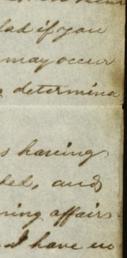 lad if you
may occur
determina
s having
bes, and
ning affairs
I have no